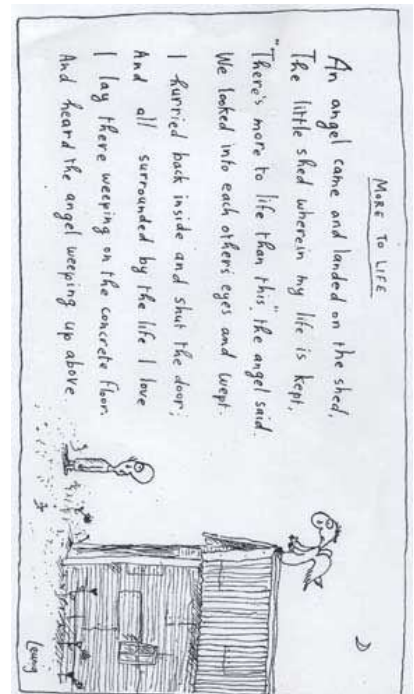 MORE TO LIFE
An angel came and landed on the shed,
The little shed wherein my life is kept,
"There's more to life than this", the angel said.
We looked into each others eyes and wept.
I hurried back inside and shut the door;
And all surrounded by the life I love
I lay there weeping on the concrete floor
And heard the angel weeping up above
Leunig